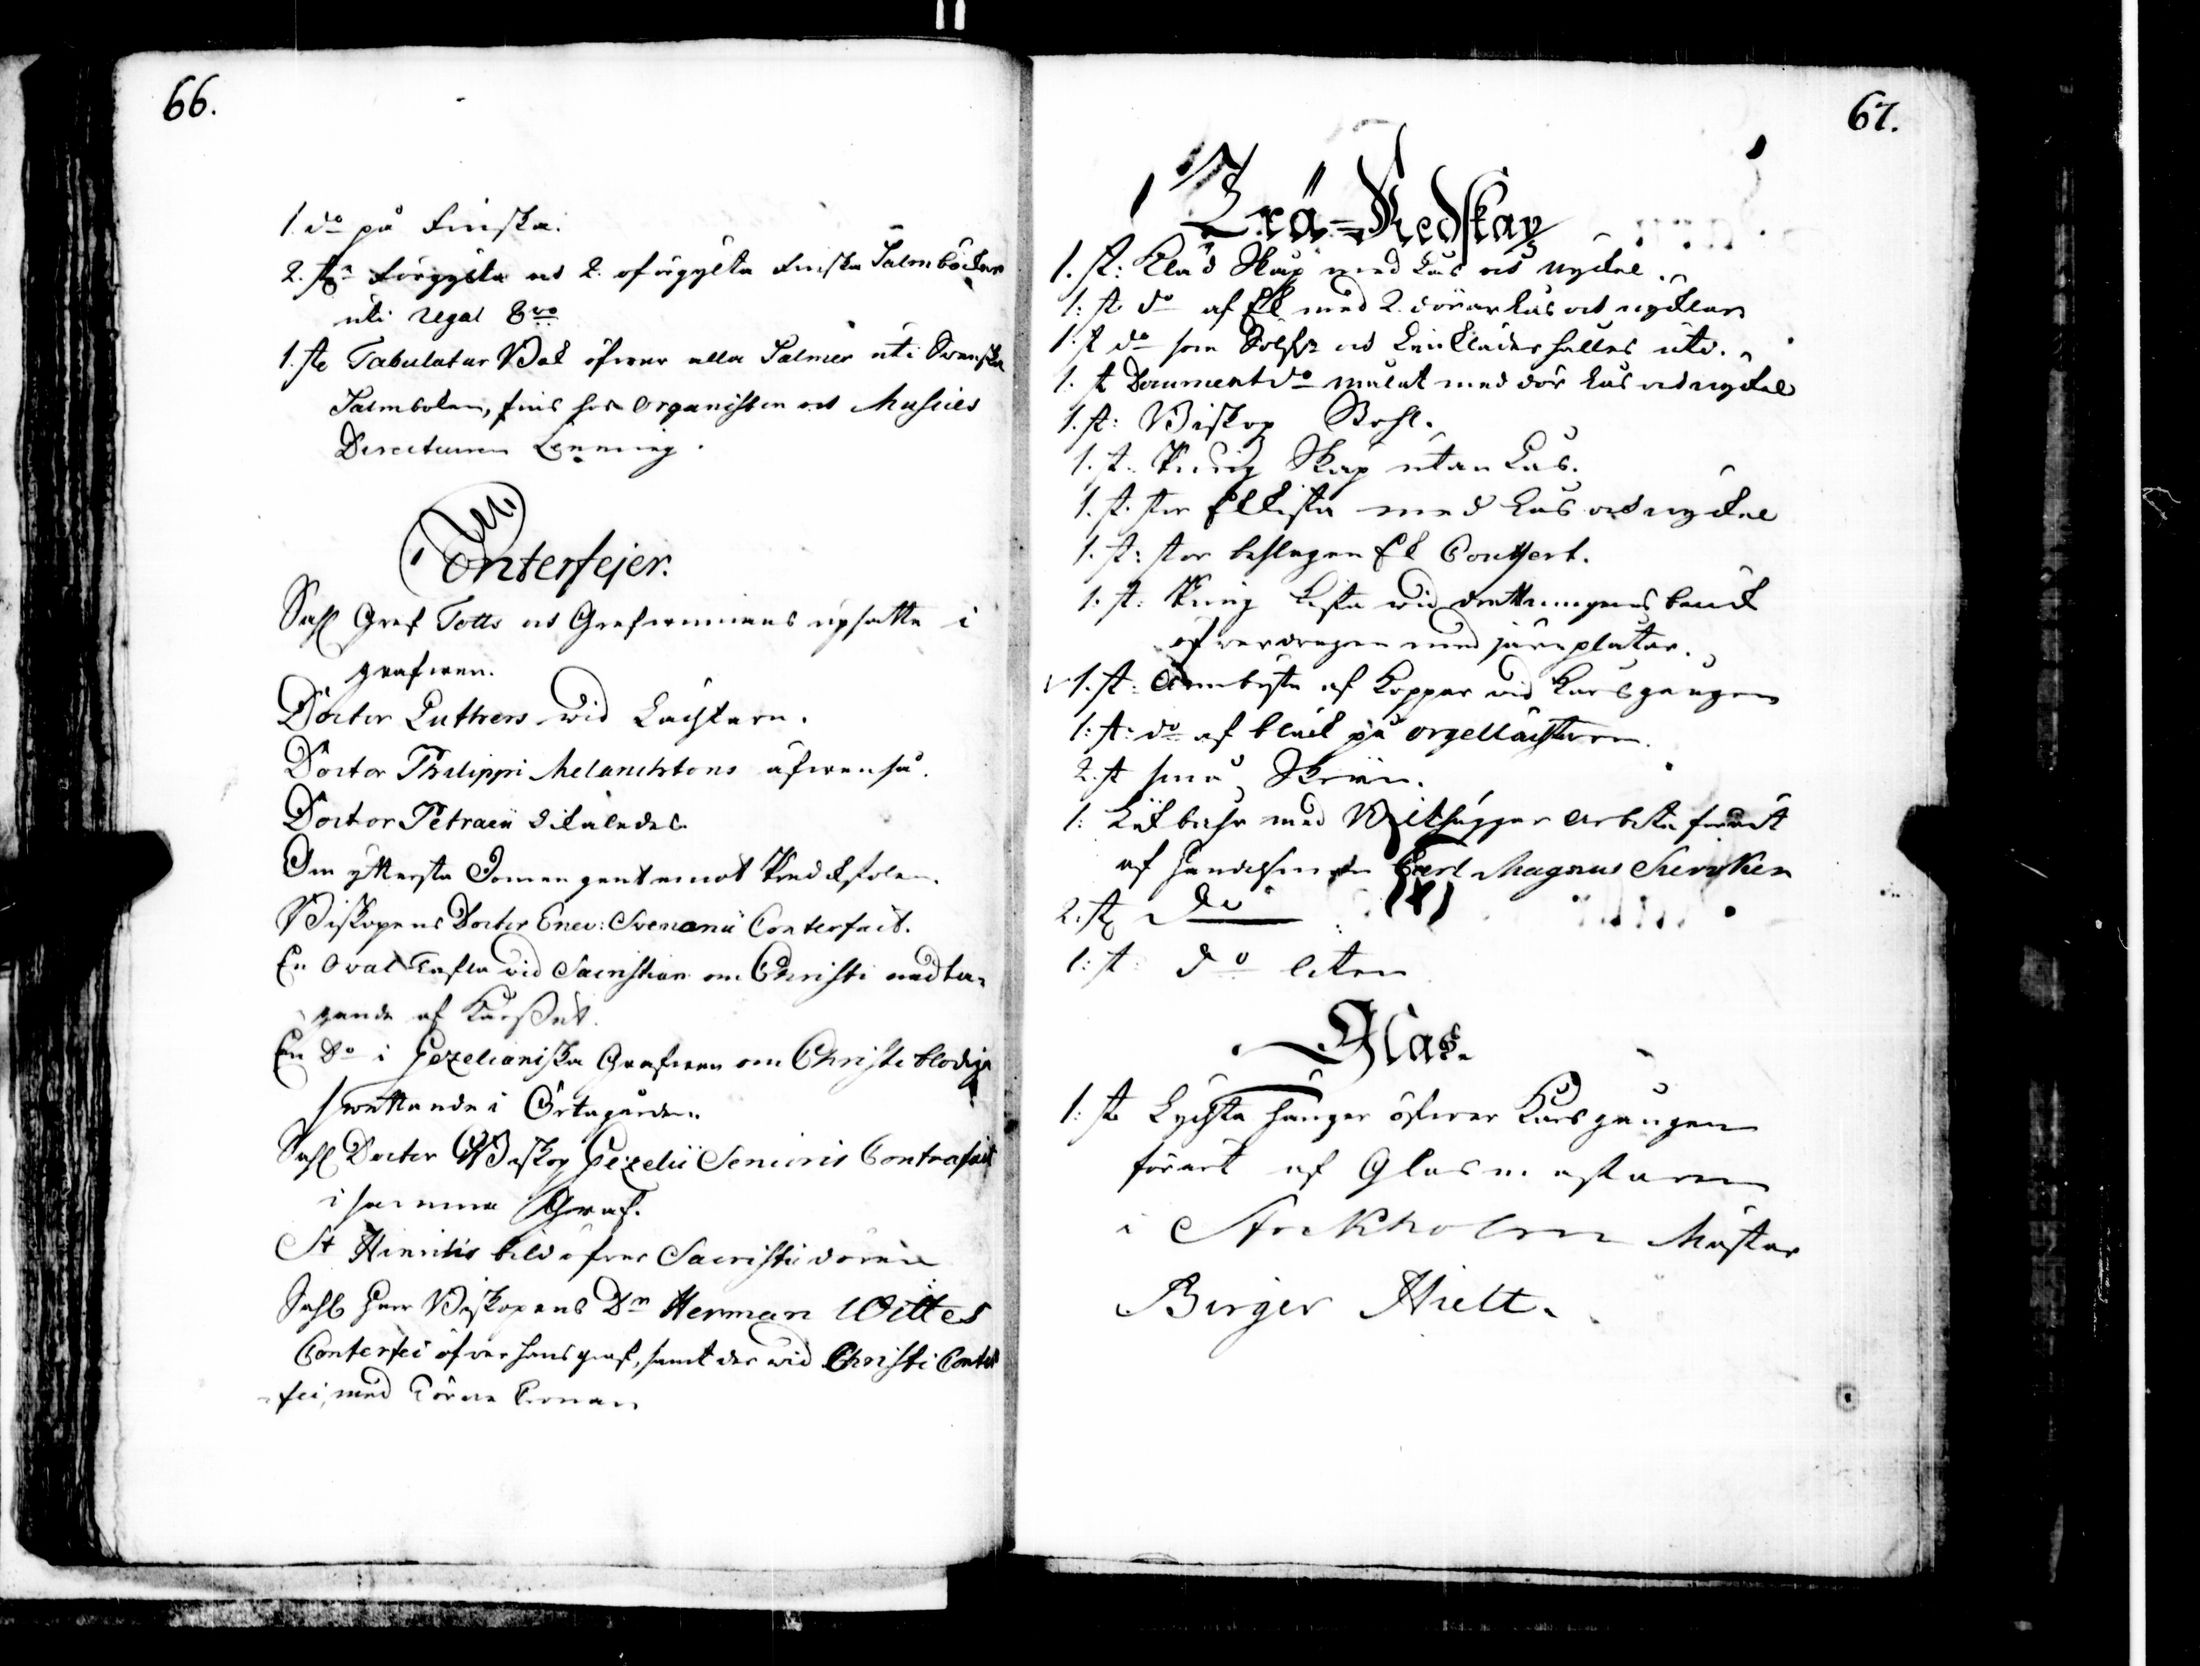 66.
1. do på Finska.
2. st. Förgylta och 2. oförgylta Finska Psalmböcker
uti regal 8vo
1. st. Tabulatur Bok öfwer alla Psalmer uti Swenska
Psalmboken, fins hos Organisten och Musices
Directeuren Lenning.
Conterfejer.
Sahl Gref Totts och Grefwinnans upsatte i
grafwen.
Doctor Luthers wid Lächtarn.
Doctor Philippi Melanchtons äfwenså.
Doctor Petraei Likaledes.
Om yttersta Domen gent emot Predikstolen.
Biskopens Doctor Enev: Svenonii Conterfait.
En Oval Tafla wid Sacristian om Christi nedta-
gande af Korsset.
En do i Gezelianiska Grafwen om Christi blodiga
swettande i Örtagården.
Sahl Doctor Biskop Gezelii Senioris Contrafait
i samma Graf.
St Hinrichs bild öfwer Sacristi dören
Sahl herr Biskopens Dn Herman Wittes
Conterfei öfwer hans graf, samt der wid Christi Conter
fei, med Törne Cronan
67.
Trä-Redskap
1. st: Kläd Skåp med Lås och nyckel.
1: st do af Ek med 2. dörar Lås och nycklar
1: st do som och Linkläder hålles uti.
1. st Document do målat med dör Lås och nyckel
1. st: Biskop Stohl.
1. st. Skåp utan Lås.
1. st. stor Ekkista med Lås och nyckel
1. st: stor beslagen Ek
1. st: Kista wid bänk
öfwerdragen med järnplåtar.
1. st: Armbysta af Koppar wid Korsgången
1: st: do af bläck på orgellächtaren.
2. st små Skrin.
1: Likbåhr med Bilthuggar arbete förärt
af handelsman Carl Magnus
2. st do
1: st: do liten
Glas.
1: st Lychta hänger öfwer Korsgången
förärt af Glasmästaren
i Stockholm Mäster
Birger Hielt.